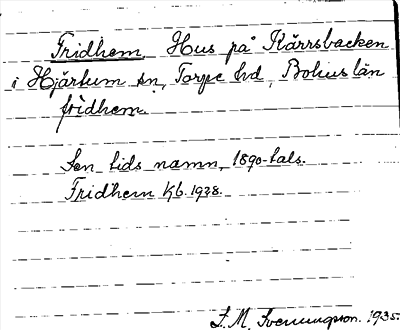 Fridhem. Hus på Kärrsbacken
i Hjärtum sn, Torpe hd, Bohus län
fridhem.
Sen tids namn, 1890-tals.
Fridhem Kb. 1928.
F. M. Svenungsson. 1935.